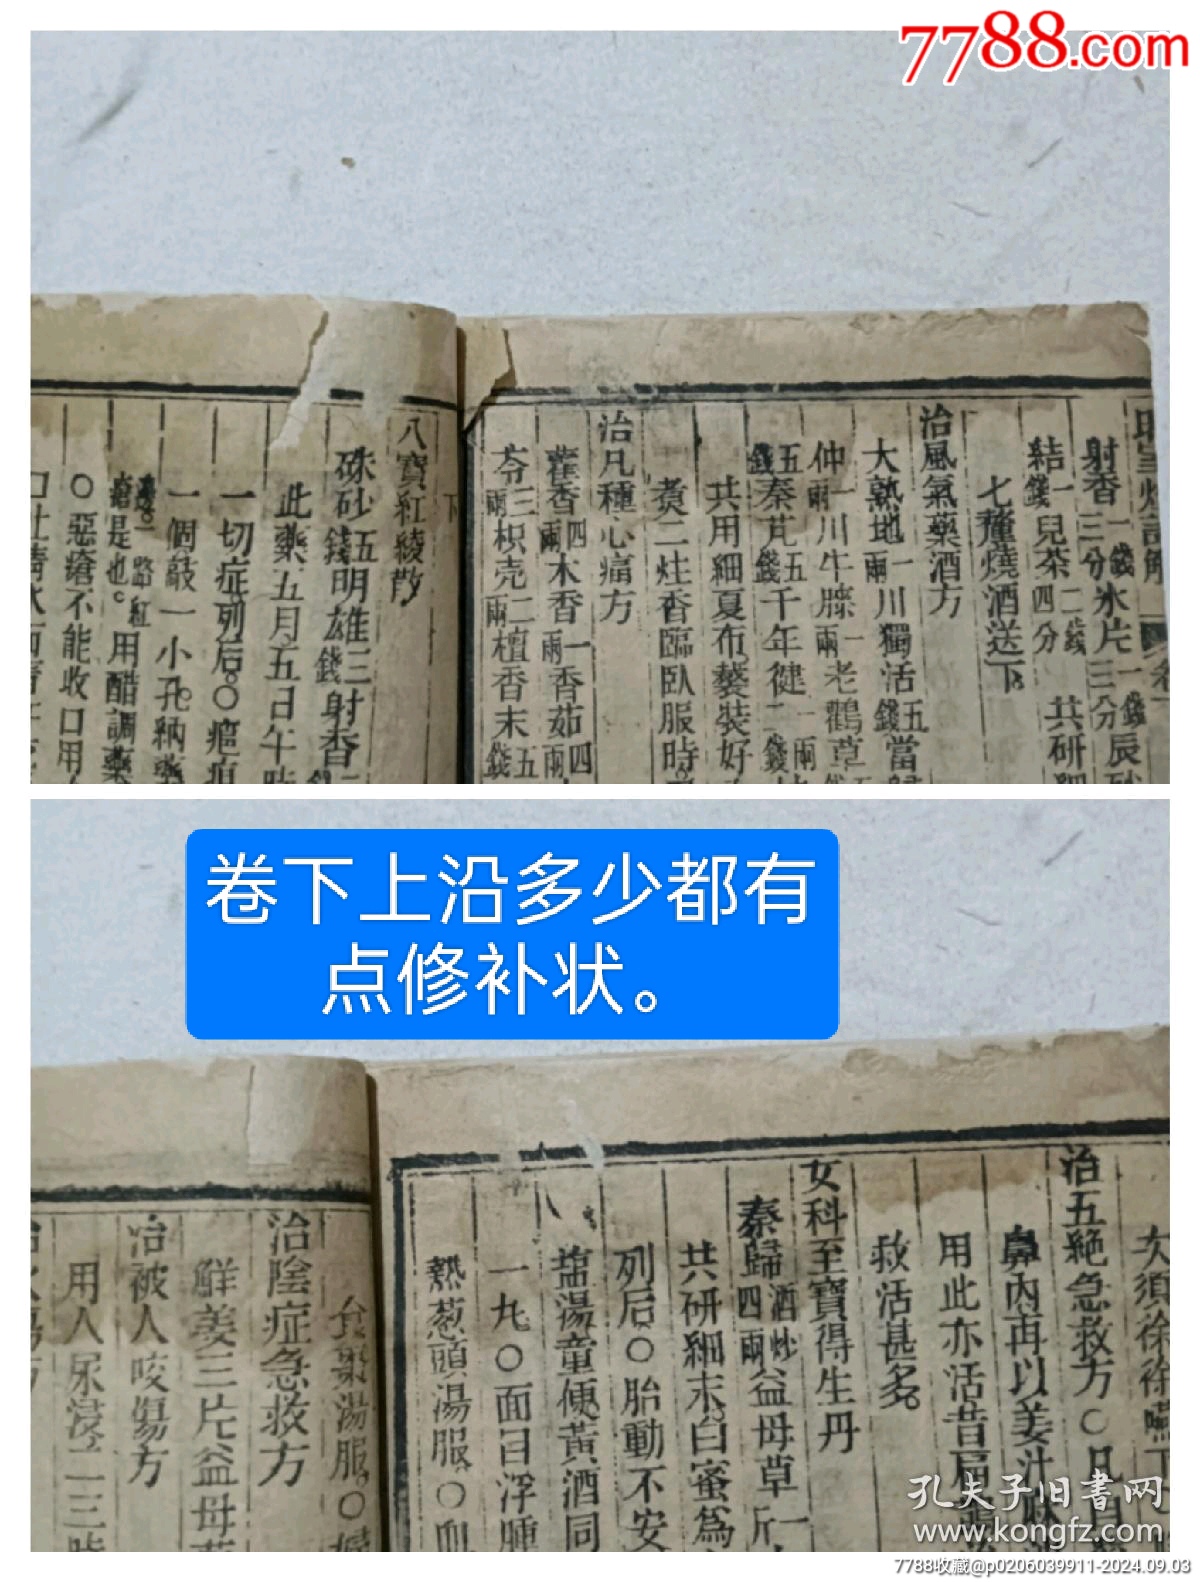 7788.com
射香一錢三分氷片一錢三分辰砂
結一錢兒茶二錢四分 共研細
七釐燒酒送下
治風氣藥酒方
大熟地一兩川獨活五錢當歸
仲一兩川牛膝一兩老鸛草
五錢秦艽五錢千年健二錢
共用細夏布襲裝好
煑二炷香臨臥服時
治凡種心痛方
藿香四兩木香一兩香茹四兩
苓三兩枳壳二兩檀香末五錢
下
八寶紅綾散
硃砂五錢明雄三錢射香
此藥五月五日午時
一切症列后〇
一個敲一小孔納藥
瘡是也。用醋調藥
〇惡瘡不能收口用
卷下上沿多少都有
点修补状。
次須徐徐嚥下
治五絕急救方〇
鼻內再以姜汁
用此亦活昔扁鵲
救活甚多。
女科至寶得生丹
秦歸酒炒四兩益母草一斤
共研細末白蜜為
列后〇胎動不安
塩湯童便黃酒同
一九〇面目浮腫
熱葱頭湯服〇血
湯服〇
治陰症急救方
鮮姜三片益母草
治被人咬傷方
用人尿浸二三時
孔夫子旧书网
www.kongfz.com
7788收藏@p0206039911-2024.09.03